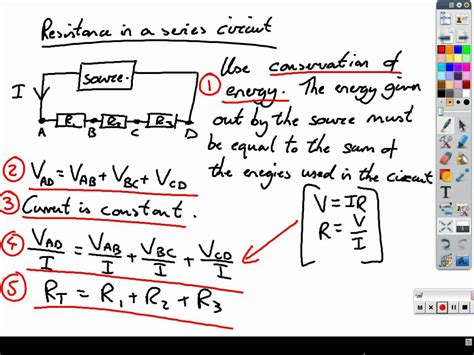 Resistance in a series circuit
source.
I
R₁ R₂ R₃
A B C D
① Use conservation of
energy. The energy given
out by the source must
be equal to the sum of
the enegies used in the circuit
② V_AD = V_AB + V_BC + V_CD
③ Current is constant.
④ V_AD/I = V_AB/I + V_BC/I + V_CD/I
V = IR
R = V/I
⑤ R_T = R₁ + R₂ + R₃